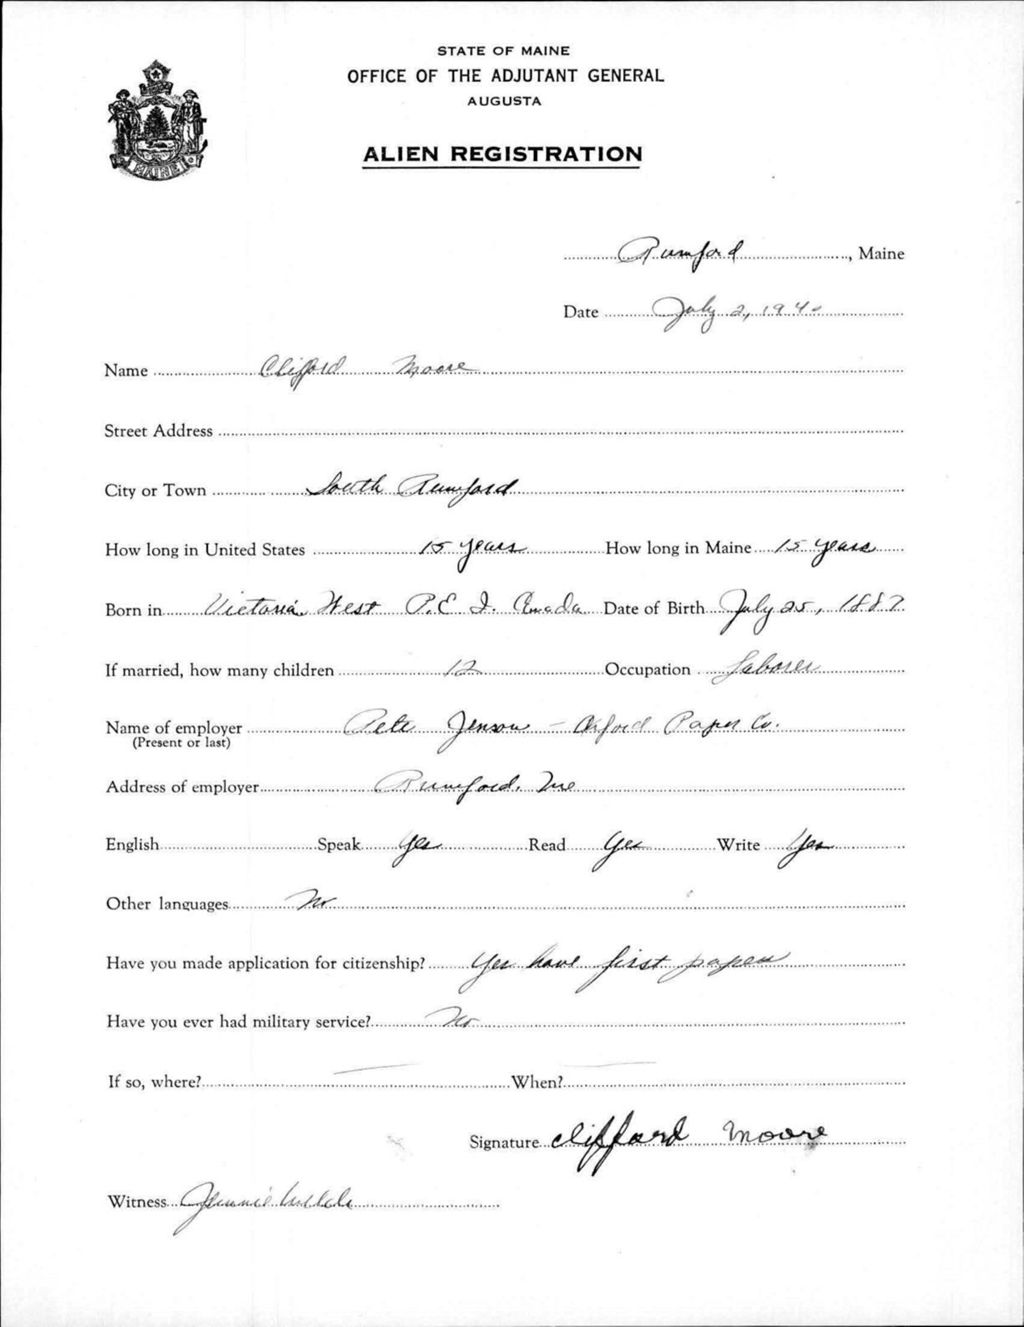 STATE OF MAINE
OFFICE OF THE ADJUTANT GENERAL
AUGUSTA
ALIEN REGISTRATION
MAINE
Rumford, Maine
Date July 2, 1940
Name Clifford Moore
Street Address
City or Town South Rumford
How long in United States 15 years How long in Maine 15 years
Born in Victoria West P.E.I. Canada Date of Birth July 25, 1887
If married, how many children 12 Occupation Laborer
Name of employer Pete Jenson - Oxford Paper Co.
(Present or last)
Address of employer Rumford, Me
English Speak Yes Read Yes Write Yes
Other languages No
Have you made application for citizenship? Yes have first papers
Have you ever had military service? No
If so, where? When?
Signature Clifford Moore
Witness Jennie